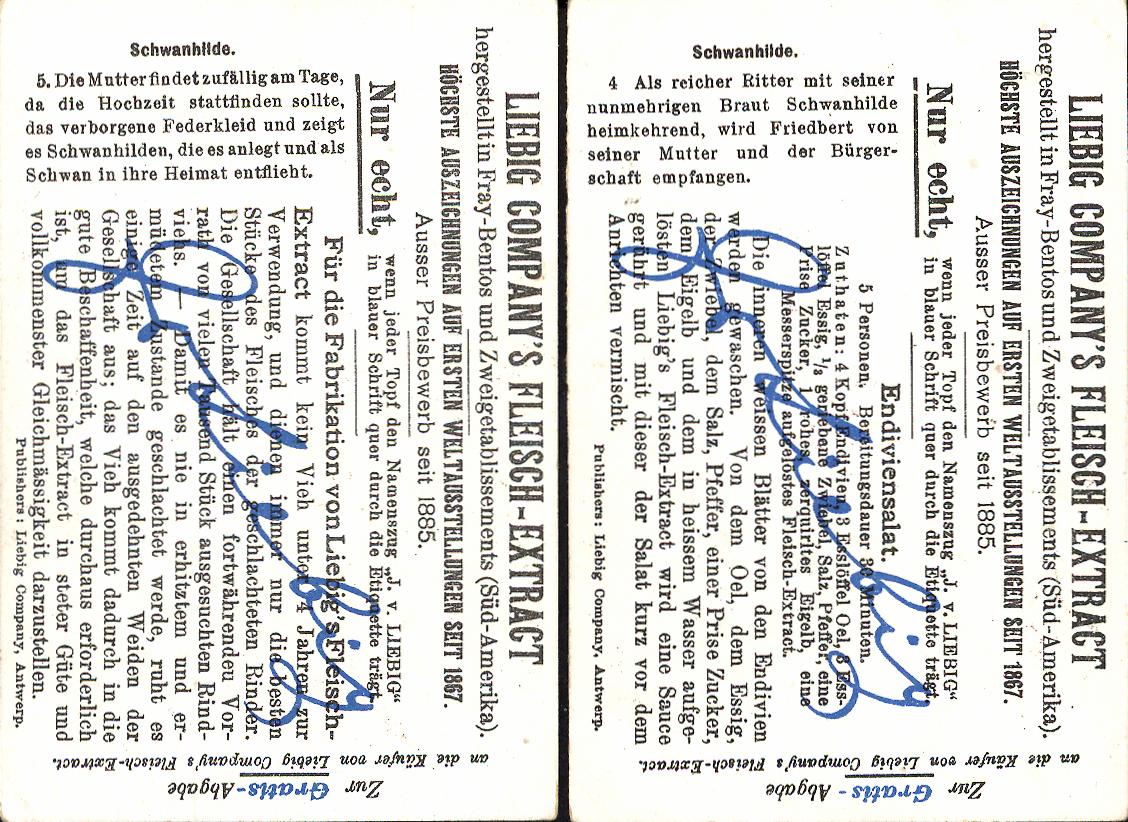 Schwanhilde.
5. Die Mutter findet zufällig am Tage,
da die Hochzeit stattfinden sollte,
das verborgene Federkleid und zeigt
es Schwanhilden, die es anlegt und als
Schwan in ihre Heimat entflieht.
LIEBIG COMPANY'S FLEISCH-EXTRACT
hergestellt in Fray-Bentos und Zweigetablissements (Süd-Amerika).
HÖCHSTE AUSZEICHNUNGEN AUF ERSTEN WELTAUSSTELLUNGEN SEIT 1867.
Ausser Preisbewerb seit 1885.
Nur echt,
wenn jeder Topf den Namenszug „J. v. LIEBIG“
in blauer Schrift quer durch die Etiquette trägt.
Für die Fabrikation von Liebig's Fleisch-
Extract kommt kein Vieh unter 4 Jahren zur
Verwendung, und dienen immer nur die besten
Stücke des Fleisches der geschlachteten Rinder.
Die Gesellschaft hält einen fortwährendeu Vor-
rath von vielen Tausend Stück ausgesuchten Rind-
viehs. — Damit es nie in erhitztem und er-
müdetem Zustande geschlachtet werde, ruht es
einige Zeit auf den ausgedehnten Weiden der
Gesellschaft aus; das Vieh kommt dadurch in die
gute Beschaffenheit, welche durchaus erforderlich
ist, um das Fleisch-Extract in steter Güte und
vollkommenster Gleichmässigkeit darzustellen.
Publishers: Liebig Company, Antwerp.
J v Liebig
Zur Gratis-Abgabe
an die Käufer von Liebig Company's Fleisch-Extract.
Schwanhilde.
4 Als reicher Ritter mit seiner
nunmehrigen Braut Schwanhilde
heimkehrend, wird Friedbert von
seiner Mutter und der Bürger-
schaft empfangen.
LIEBIG COMPANY'S FLEISCH-EXTRACT
hergestellt in Fray-Bentos und Zweigetablissements (Süd-Amerika).
HÖCHSTE AUSZEICHNUNGEN AUF ERSTEN WELTAUSSTELLUNGEN SEIT 1867.
Ausser Preisbewerb seit 1885.
Nur echt,
wenn jeder Topf den Namenszug „J. v. LIEBIG“
in blauer Schrift quer durch die Etiquette trägt.
Endiviensalat.
5 Personen. Bereitungsdauer 30 Minuten.
Zuthaten: 4 Kopf Endivien, 3 Esslöffel Oel, 3 Ess-
löffel Essig, 1/2 geriebene Zwiebel, Salz, Pfeffer, eine
Prise Zucker, 1 rohes, zerquirltes Eigelb, eine
Messerspitze aufgelöstes Fleisch-Extract.
Die inneren weissen Blätter von den Endivien
werden gewaschen. Von dem Oel, dem Essig,
der Zwiebel, dem Salz, Pfeffer, einer Prise Zucker,
dem Eigelb und dem in heissem Wasser aufge-
lösten Liebig's Fleisch-Extract wird eine Sauce
gerührt und mit dieser der Salat kurz vor dem
Anrichten vermischt.
Publishers: Liebig Company, Antwerp.
J v Liebig
Zur Gratis-Abgabe
an die Käufer von Liebig Company's Fleisch-Extract.